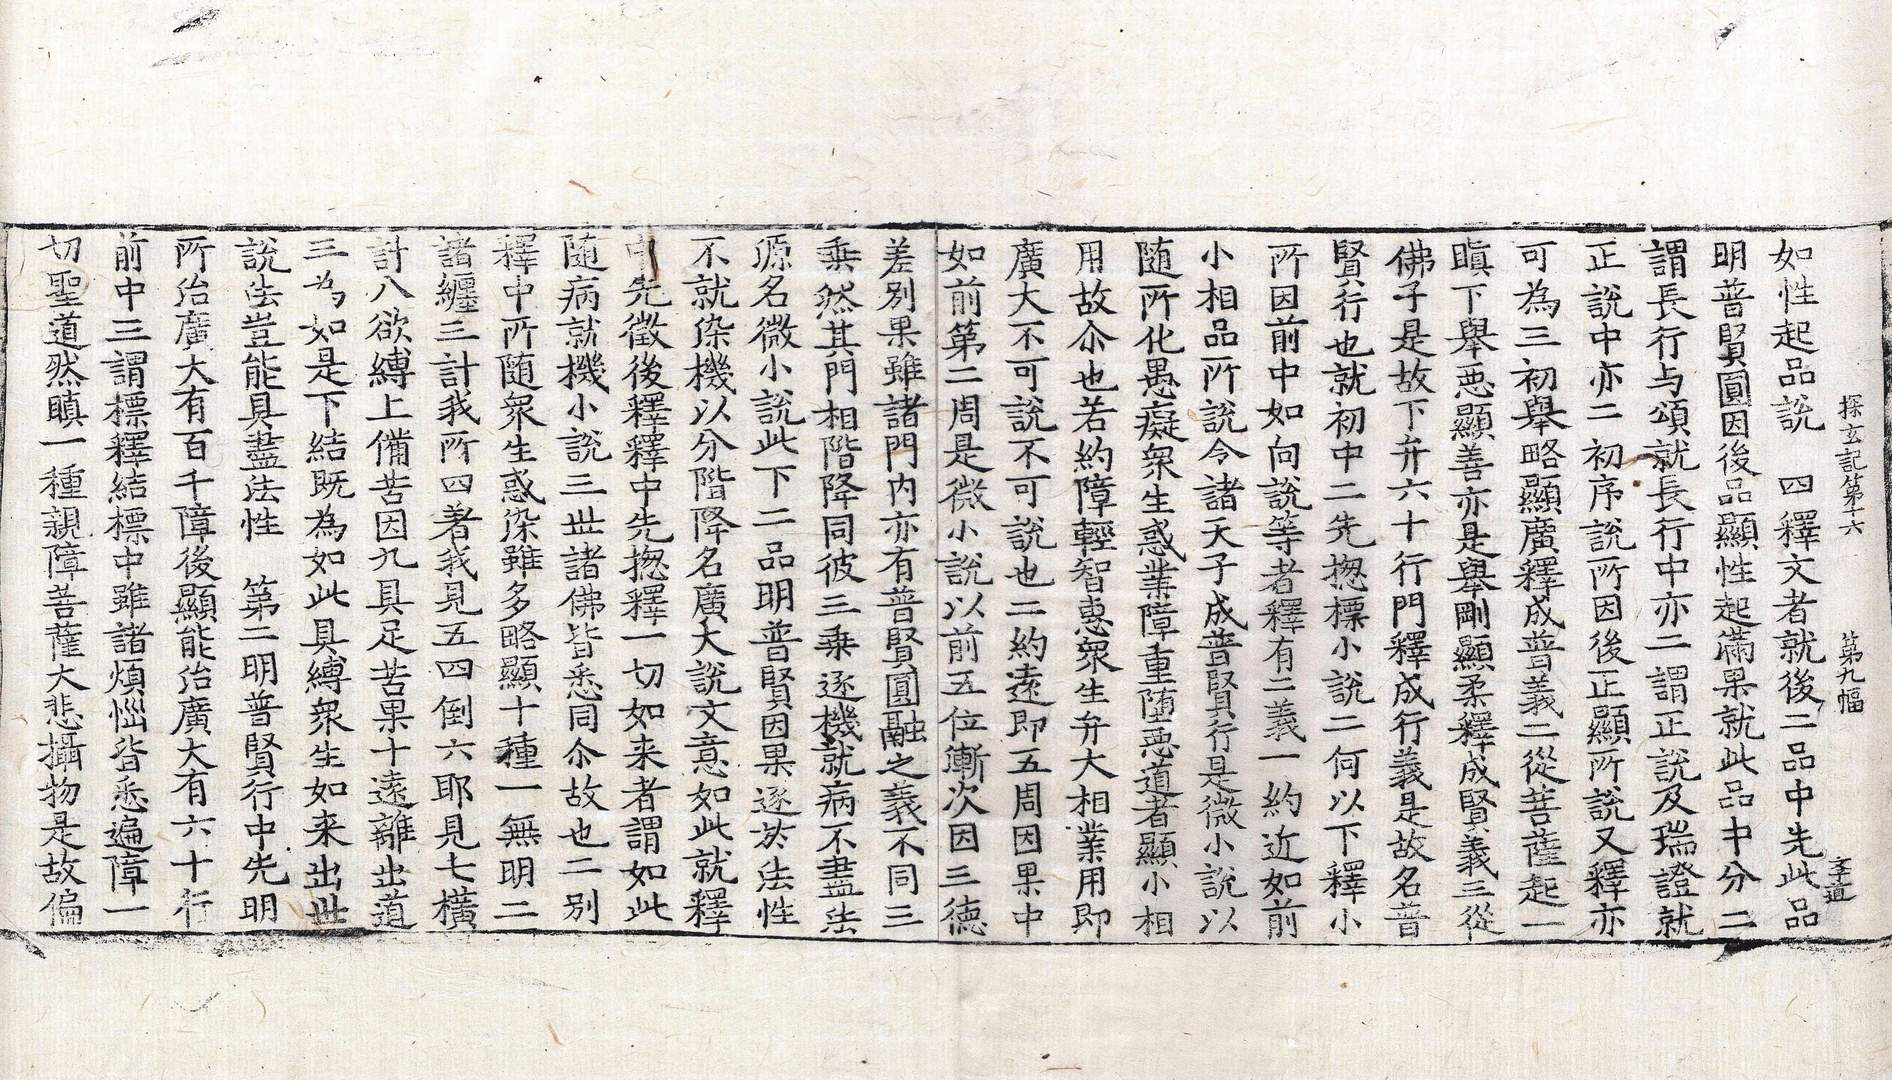 探玄記第十六 第九幅 孝道
如性起品說 四釋文者就後二品中先此品
明普賢圓因後品顯性起滿果就此品中分二
謂長行与頌就長行中亦二謂正說及瑞證就
正說中亦二初序說所因後正顯所說又釋亦
可為三初舉略顯廣釋成普義二從菩薩起一
瞋下舉惡顯善亦是舉剛顯柔釋成賢義三從
佛子是故下弁六十行門釋成行義是故名普
賢行也就初中二先揔標小說二何以下釋小
所因前中如向說等者釋有二義一約近如前
小相品所說令諸天子成普賢行是微小說以
随所化愚癡衆生惑業障重堕惡道者顯小相
用故尒也若約障輕智惠衆生弁大相業用即
廣大不可說不可說也二約遠即五周因果中
如前第二周是微小說以前五位漸次因三德
差別果雖諸門內亦有普賢圓融之義不同三
乗然其門相階降同彼三乗逐機就病不盡法
源名微小說此下二品明普賢因果逐於法性
不就染機以分階降名廣大說文意如此就釋
中先徵後釋釋中先揔釋一切如来者謂如此
随病就機小說三世諸佛皆悉同尒故也二別
釋中所随衆生惑染雖多略顯十種一無明二
諸纏三計我所四著我見五四倒六耶見七橫
計八欲縛上備苦因九具足苦果十遠離出道
三為如是下結既為如此具縛衆生如来出世
說法豈能具盡法性 第二明普賢行中先明
所治廣大有百千障後顯能治廣大有六十行
前中三謂標釋結標中雖諸煩惱皆悉遍障一
切聖道然瞋一種親障菩薩大悲攝物是故偏